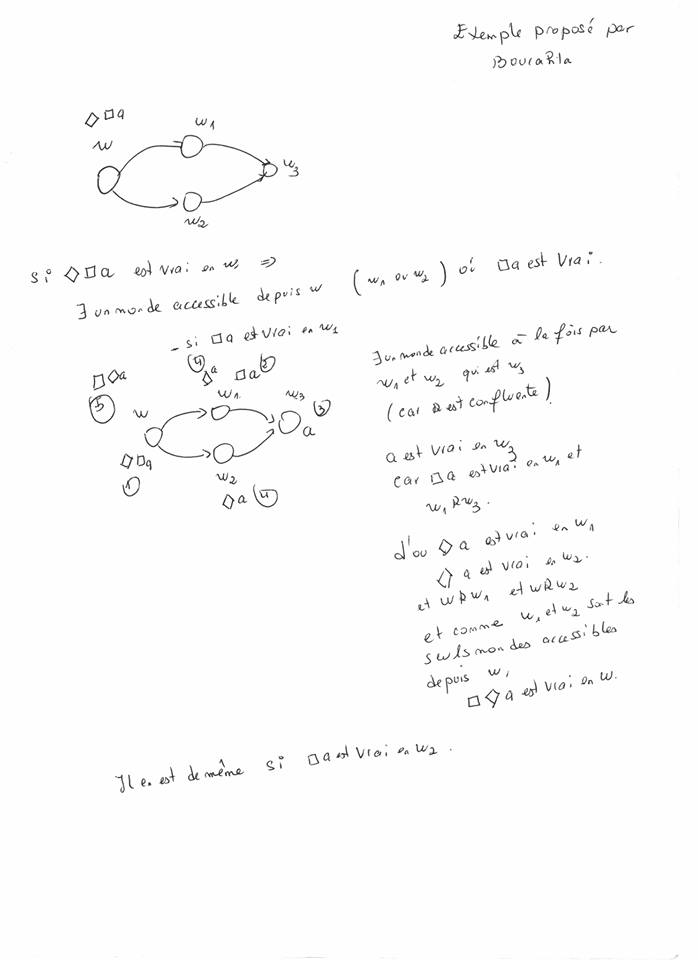 Exemple proposé par
Bourahla
◇□a
w
w₁
w₂
w₃
si ◇□a est vrai en w, =>
∃ un monde accessible depuis w (w₁ ou w₂) où □a est vrai.
- si □a est vrai en w₁
□◇a
(5)
w
◇□a
(1)
(4)
◇a
□a (2)
w₁
w₃
(3)
a
w₂
◇a (4)
∃ un monde accessible à la fois par
w₁ et w₂ qui est w₃
(car R est confluente)
a est vrai en w₃
car □a est vrai en w₁ et
w₁Rw₃.
d'où ◇a est vrai en w₁
◇a est vrai en w₂.
et wRw₁ et wRw₂
et comme w₁ et w₂ sont les
seuls mondes accessibles
depuis w,
□◇a est vrai en w.
Il en est de même si □a est vrai en w₂.